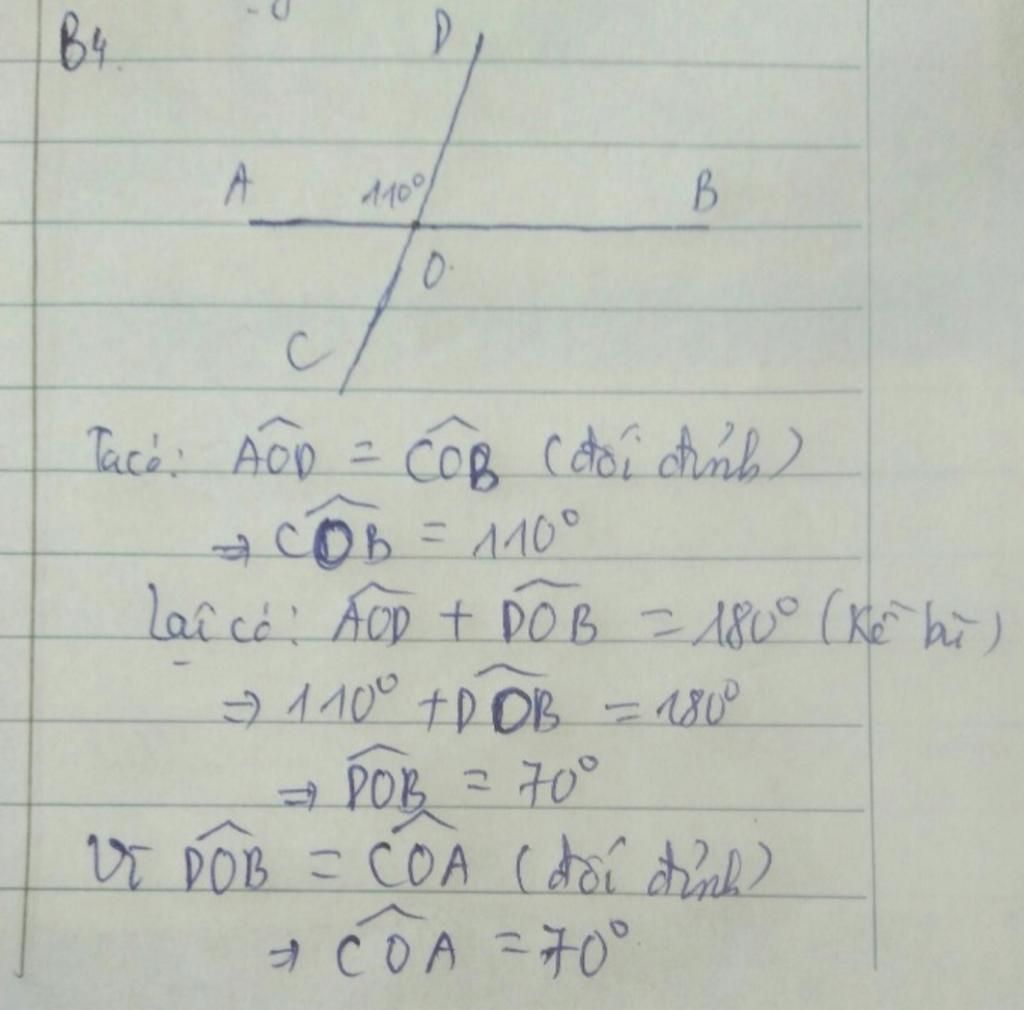 B4.
D
A 110° B
O.
C
Ta có: $\widehat{AOD}$ = $\widehat{COB}$ (đối đỉnh)
⇒ $\widehat{COB}$ = 110°
Lại có: $\widehat{AOD}$ + $\widehat{DOB}$ = 180° (Kề bù)
⇒ 110° + $\widehat{DOB}$ = 180°
⇒ $\widehat{DOB}$ = 70°
Vì $\widehat{DOB}$ = $\widehat{COA}$ (đối đỉnh)
⇒ $\widehat{COA}$ = 70°